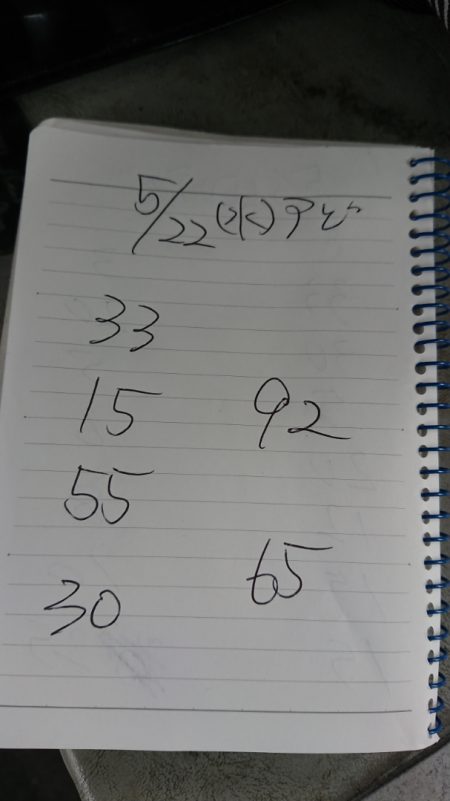 5/22(水)アセ
33
15 92
55
65
30